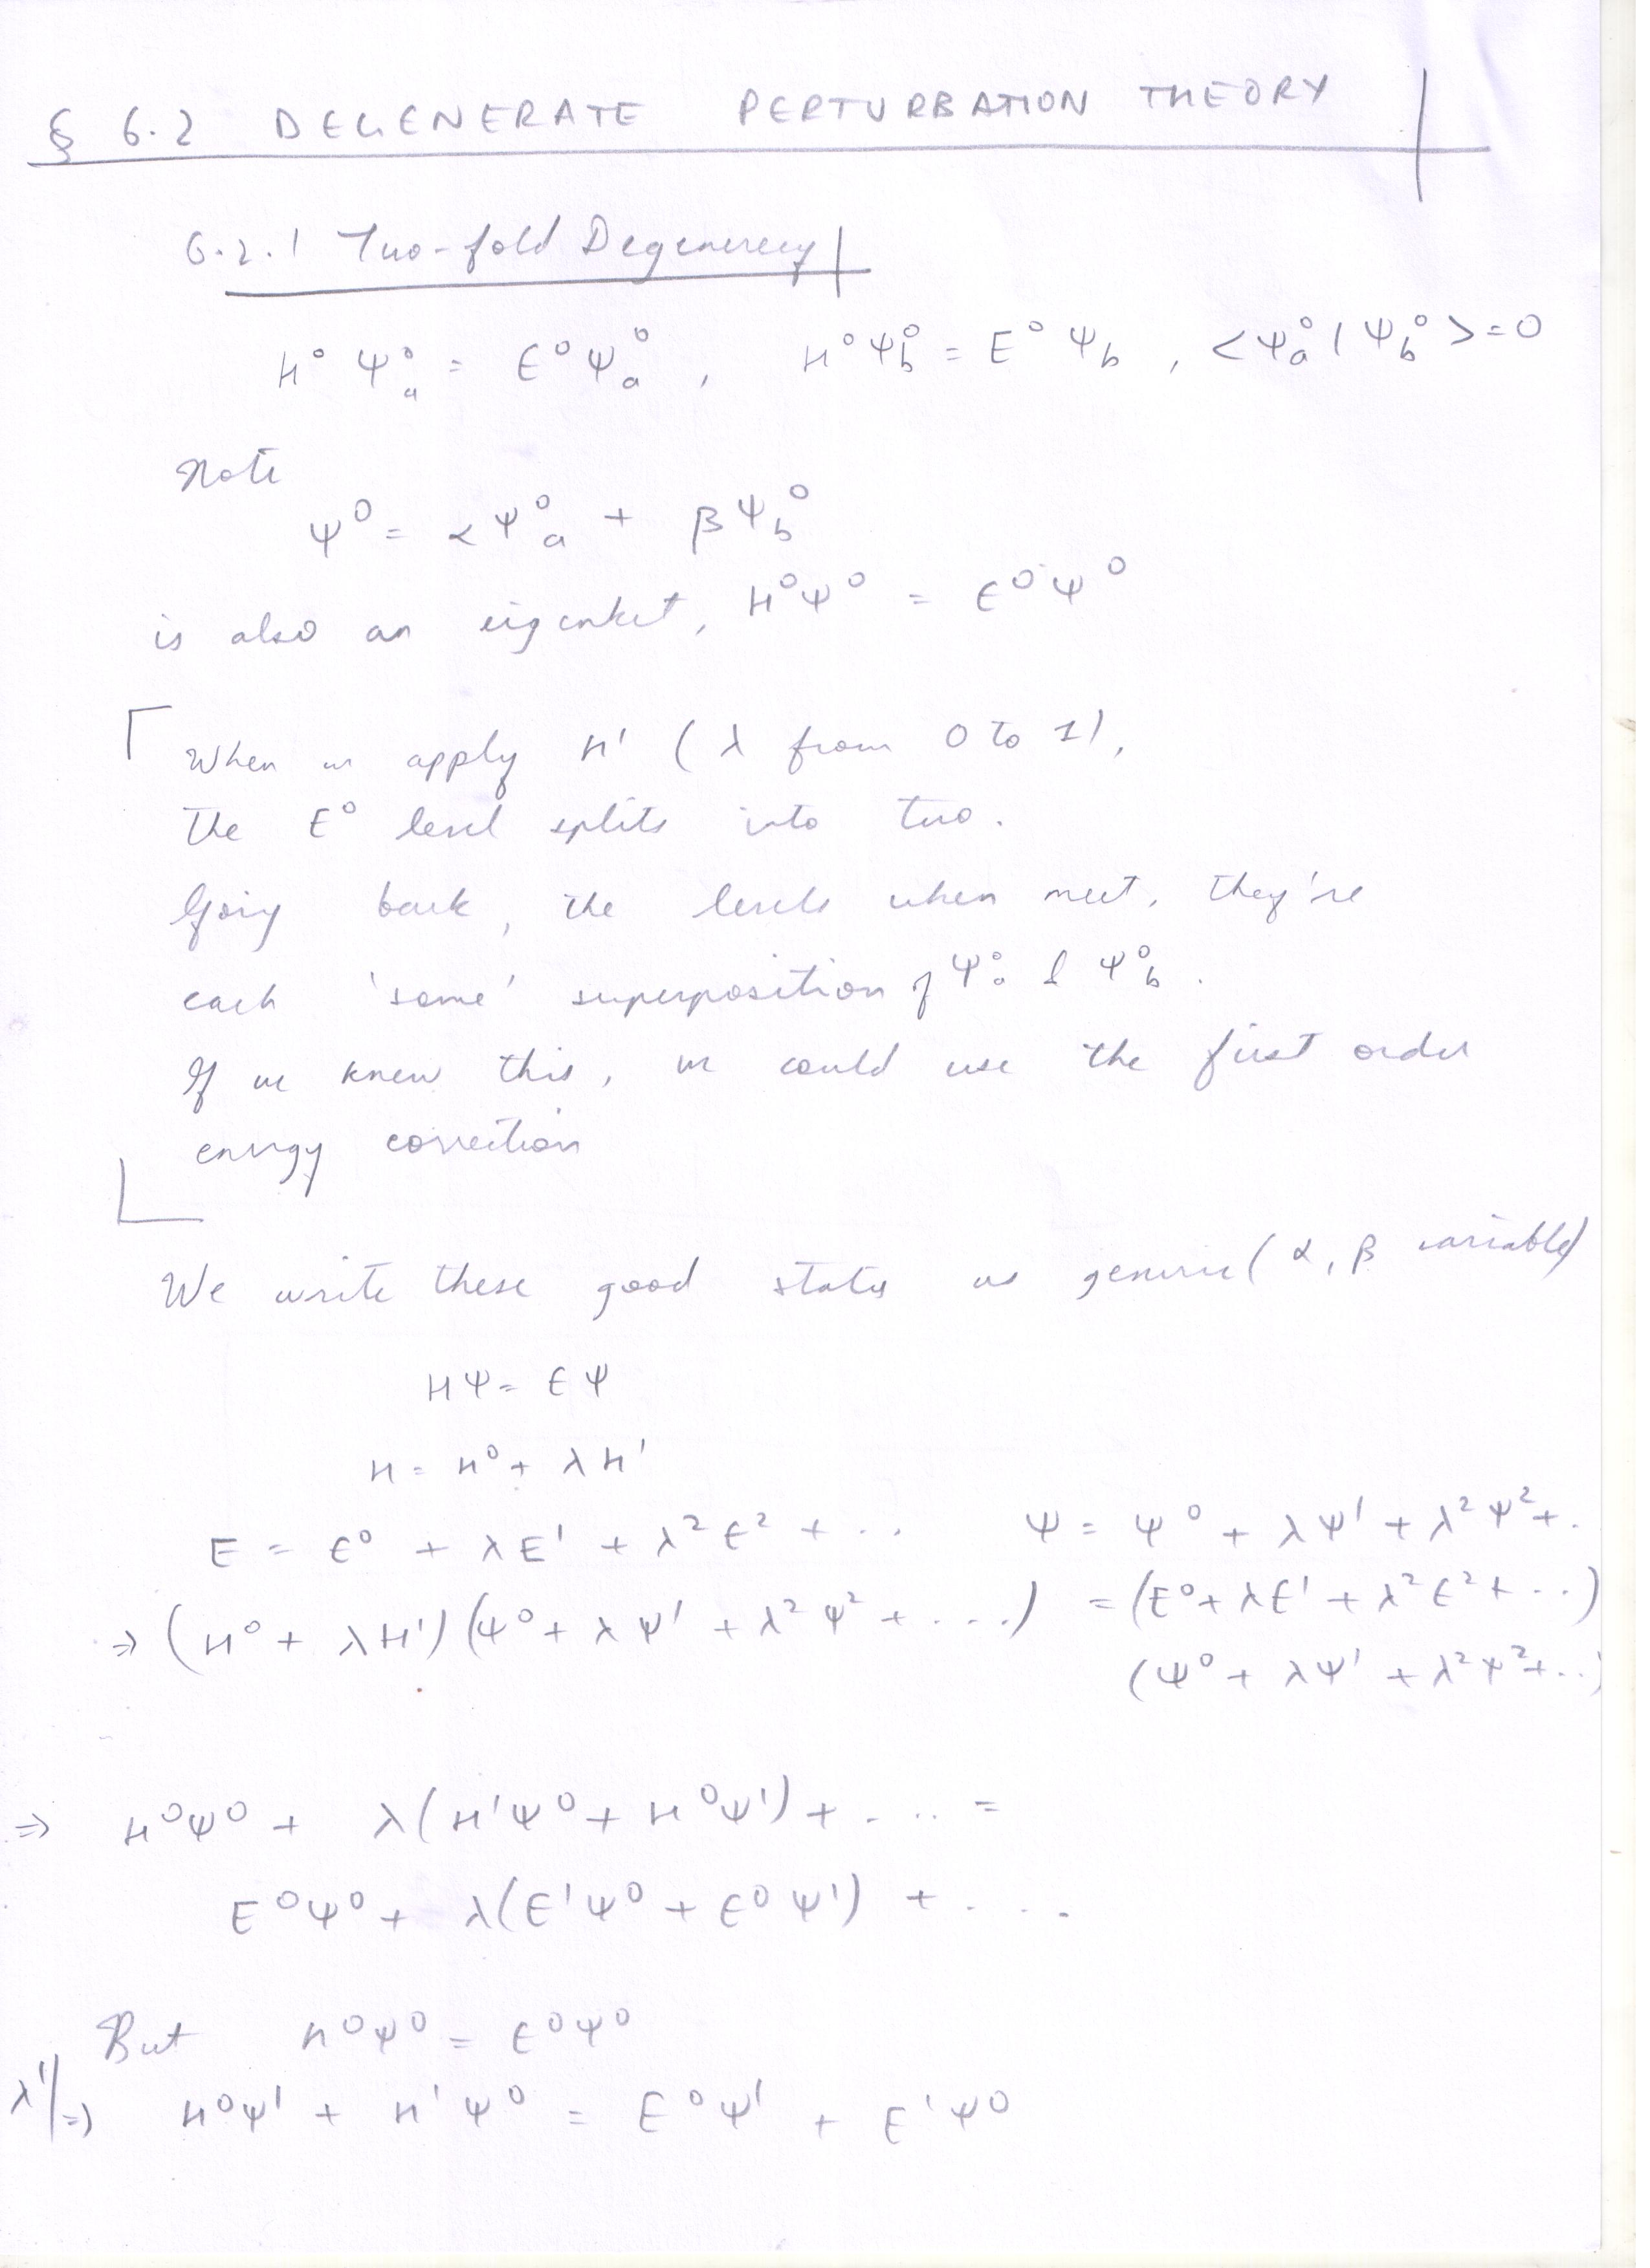 § 6.2 DEGENERATE PERTURBATION THEORY
6.2.1 Two-fold Degeneracy
H⁰ Ψₐ⁰ = E⁰Ψₐ⁰ , H⁰Ψ_b⁰ = E⁰ Ψ_b , <Ψₐ⁰|Ψ_b⁰>=0
Note
Ψ⁰ = αΨₐ⁰ + βΨ_b⁰
is also an eigenket, H⁰Ψ⁰ = E⁰Ψ⁰
When we apply H' (λ from 0 to 1),
the E⁰ level splits into two.
Going back, the levels when meet, they're
each 'some' superposition of Ψₐ⁰ & Ψ_b⁰.
If we knew this, we could use the first order
energy correction
We write these good states as generic (α, β variable)
HΨ = EΨ
H = H⁰ + λH'
E = E⁰ + λE' + λ²E² + ... Ψ = Ψ⁰ + λΨ' + λ²Ψ² + .
⇒ (H⁰ + λH')(Ψ⁰ + λΨ' + λ²Ψ² + ....) = (E⁰ + λE' + λ²E² + ...)
(Ψ⁰ + λΨ' + λ²Ψ² + ..)
⇒ H⁰Ψ⁰ + λ(H'Ψ⁰ + H⁰Ψ') + .... =
E⁰Ψ⁰ + λ(E'Ψ⁰ + E⁰Ψ') + ....
But H⁰Ψ⁰ = E⁰Ψ⁰
λ'/⇒ H⁰Ψ' + H'Ψ⁰ = E⁰Ψ' + E'Ψ⁰